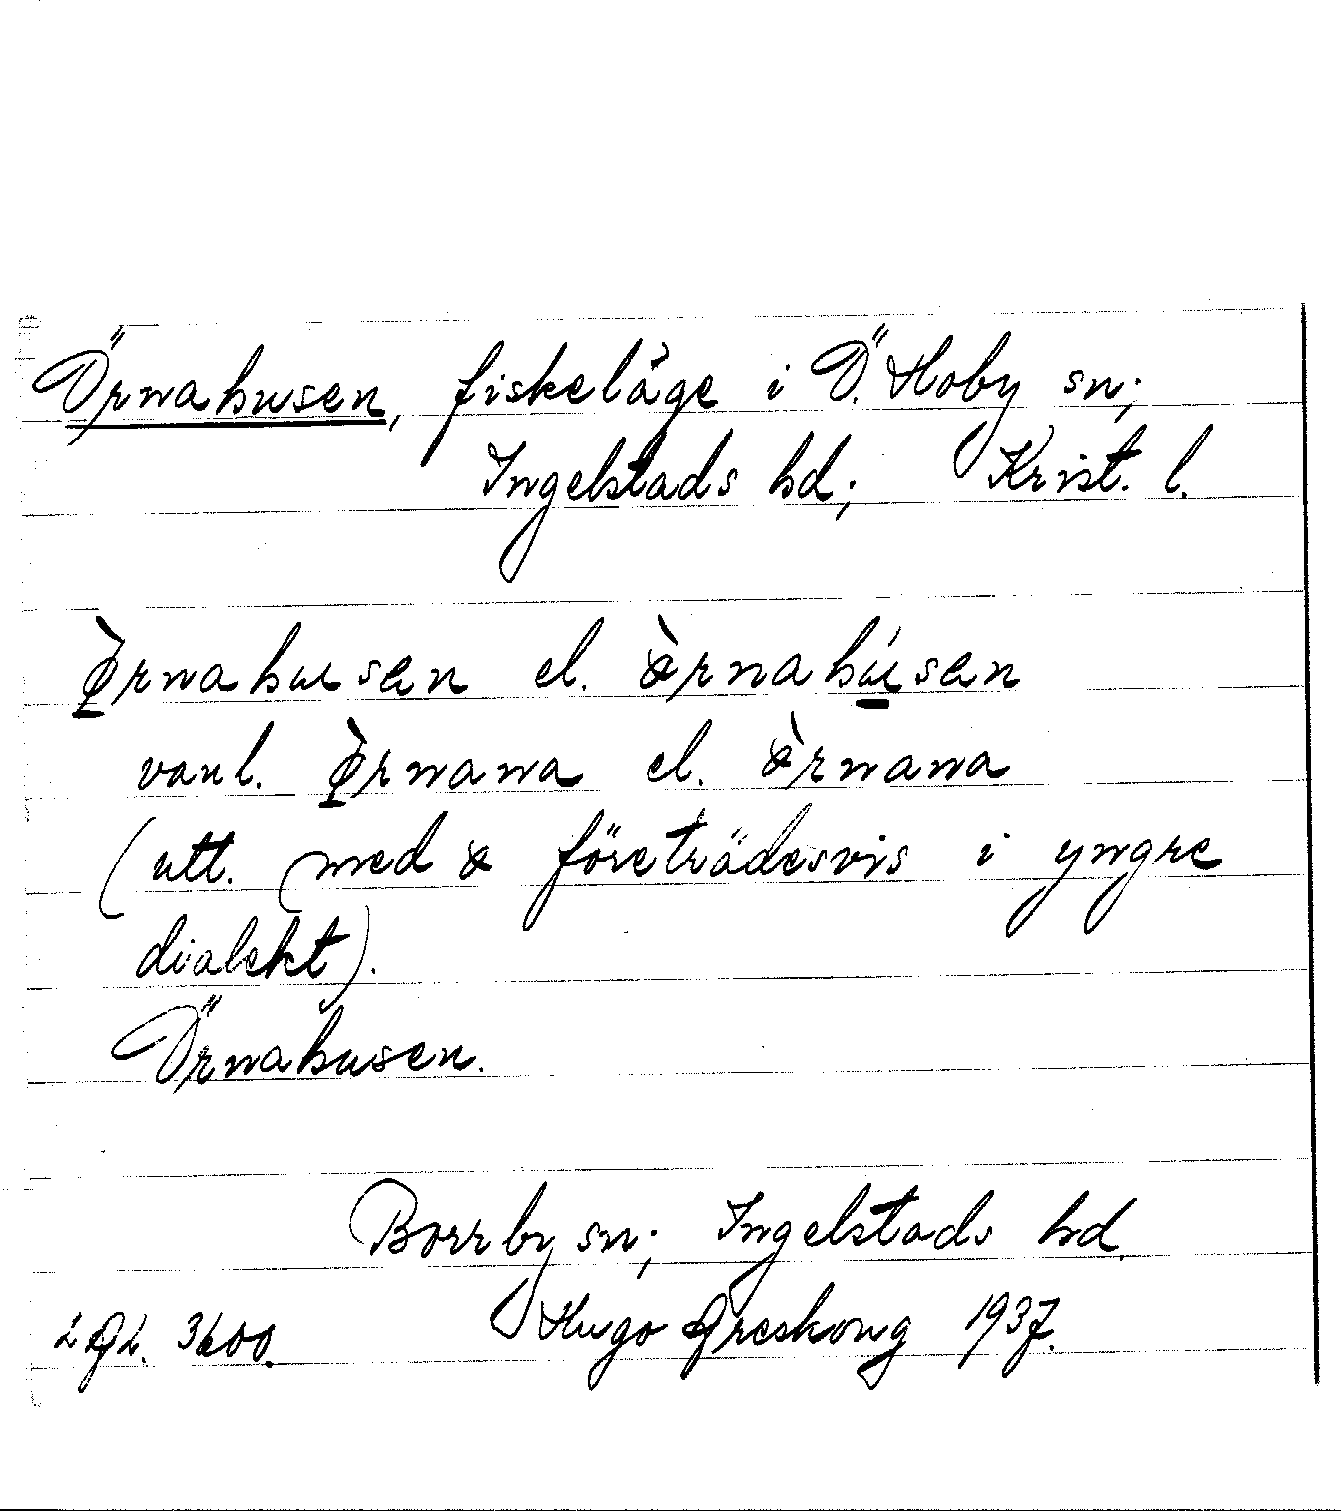 Örnahusen, fiskeläge i Ö. Hoby sn;
Ingelstads hd; Krist. l.
ø̀rnahusen el. œ̀rnahúsen
vanl. ø̀rnana el. œ̀rnana
(utt. med œ företrädesvis i yngre
dialekt).
Örnahusen.
Borrby sn; Ingelstads hd.
LGL. 3600. Hugo Areskoug 1937.